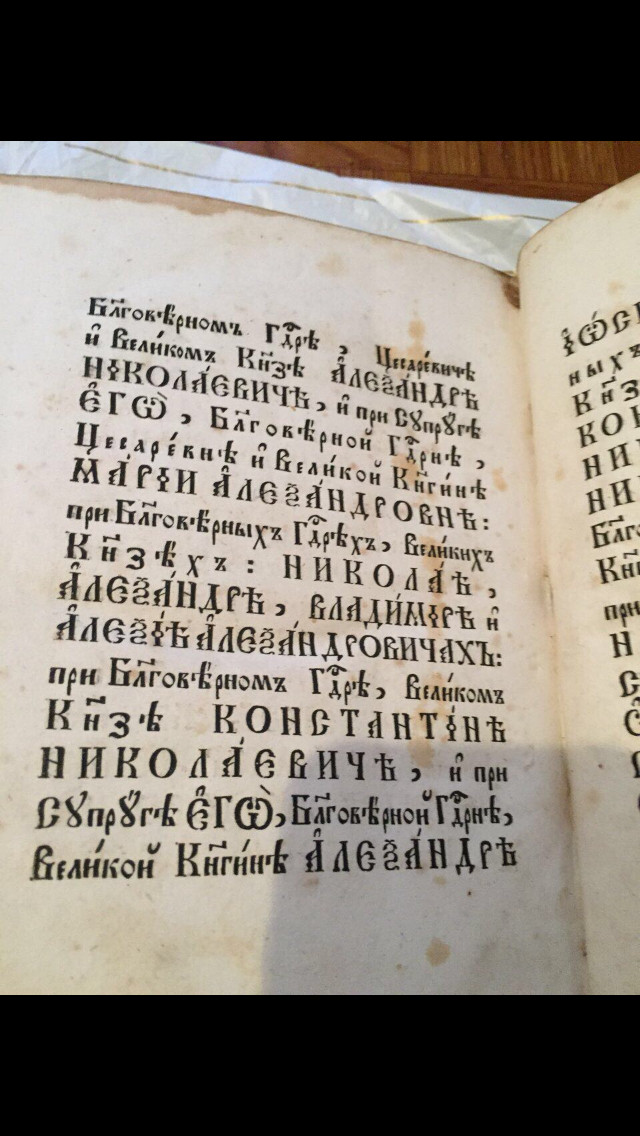 Бл҃говѣрномъ Гдⷭ҇рѣ, Цесаре́вичѣ
и҆ Вели́комъ Кн҃зѣ А҆ЛЕѮА́НДРѢ
НІКОЛА́ЕВИЧѢ, и҆ при Сꙋпрꙋ́гѣ
Є҆ГѠ̀, Бл҃говѣ́рной Гдⷭ҇рнѣ,
Цесаре́внѣ и҆ Вели́кой Кн҃ги́нѣ
МАРІ́И А҆ЛЕѮА́НДРОВНѢ:
при Бл҃говѣ́рныхъ Гдⷭ҇рѣхъ, Вели́кихъ
Кн҃зѣхъ: НИКОЛА́Ѣ,
А҆ЛЕѮА́НДРѢ, ВЛАДИ́МІРѢ и҆
А҆ЛЕѮІ́Ѣ А҆ЛЕѮА́НДРОВИЧАХЪ:
при Бл҃говѣ́рномъ Гдⷭ҇рѣ, Вели́комъ
Кн҃зѣ КОНСТАНТІ́НѢ
НИКОЛА́ЕВИЧѢ, и҆ при
Сꙋпрꙋ́гѣ Є҆ГѠ̀, Бл҃говѣ́рной Гдⷭ҇рнѣ,
Вели́кой Кн҃ги́нѣ А҆ЛЕѮА́НДРѢ